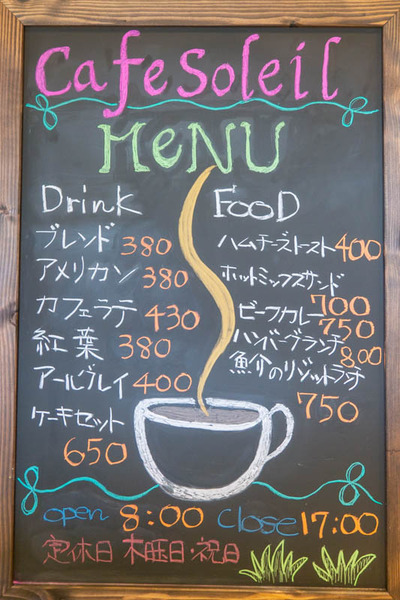 CafeSoleil
MeNU
Drink
ブレンド 380
アメリカン 380
カフェラテ 430
紅葉 380
アールグレイ 400
ケーキセット
650
FooD
ハムチーズトースト 400
ホットミックスサンド
700
ビーフカレー 750
ハンバーグランチ 800
魚介のリゾットランチ
750
open 8:00 Close 17:00
定休日 木曜日・祝日